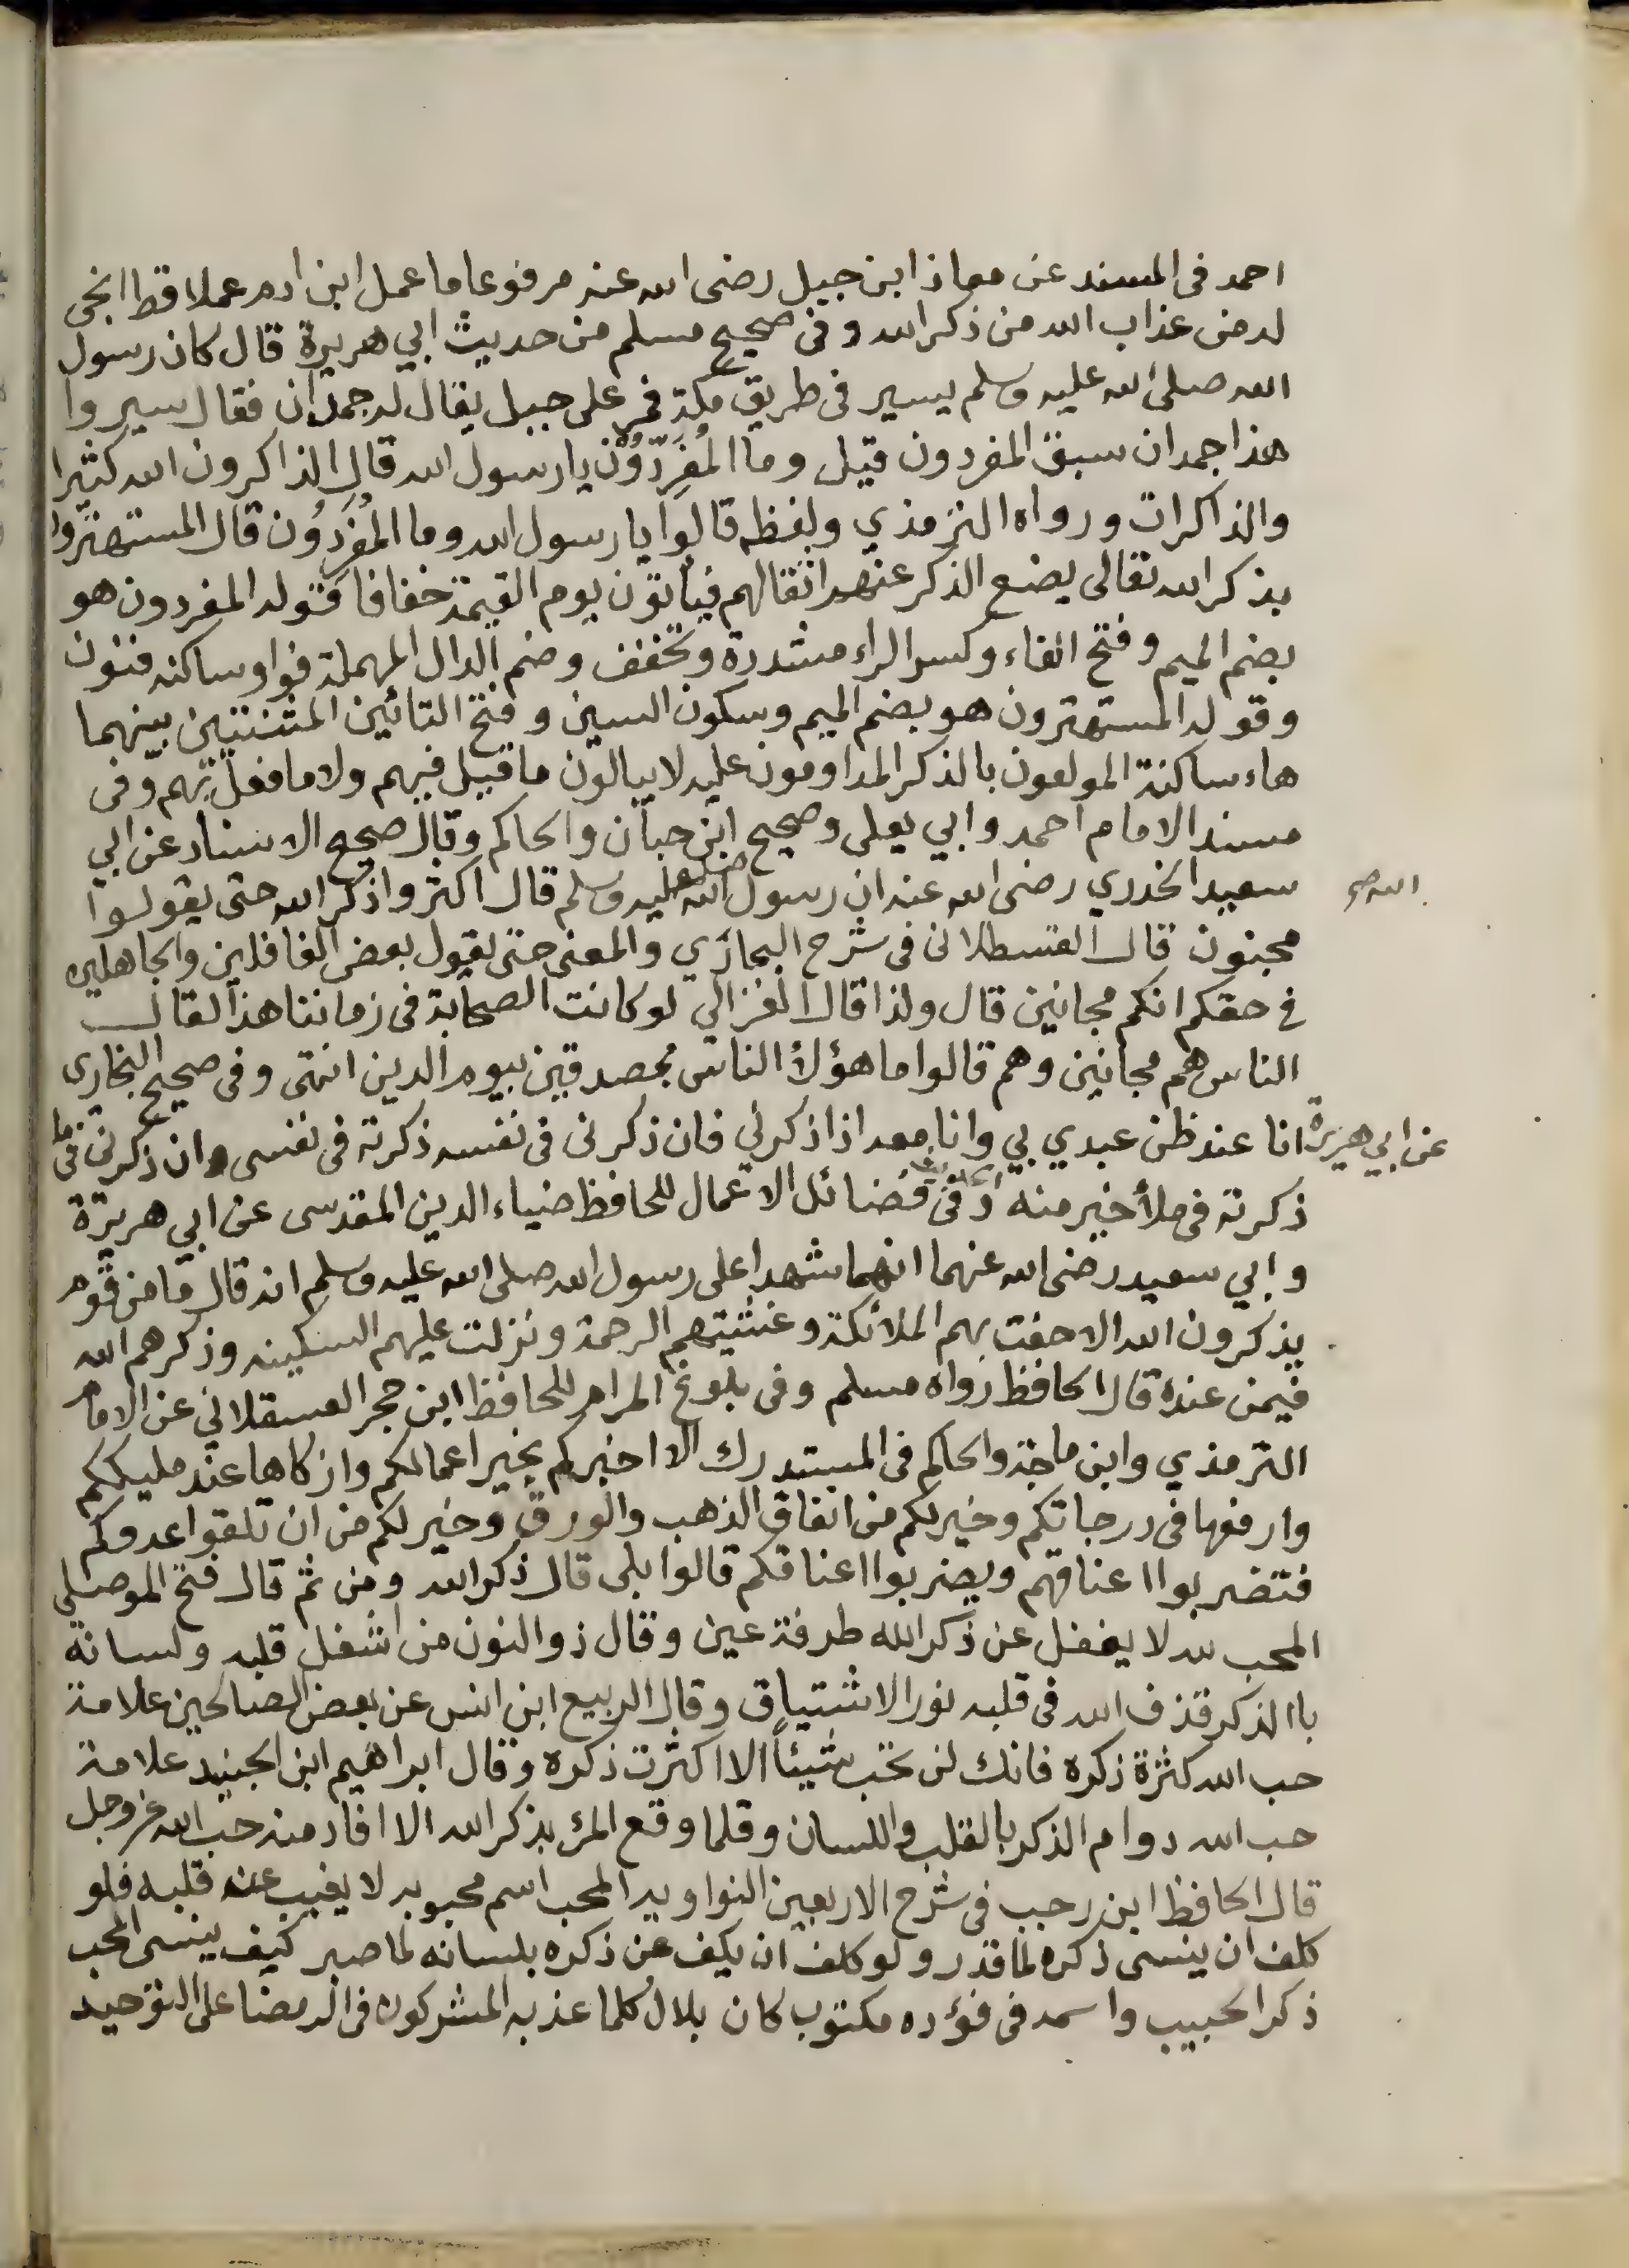 احمد فى المسند عن معاذ ابن جبيل رضى الله عنه مرفوعا ما عمل ابن ادم عملا قط انجى
له من عذاب الله من ذكر الله وفى صحيح مسلم من حديث ابي هريرة قال كان رسول
الله صلى الله عليه وسلم يسير فى طريق مكة فمر على جبيل يقال له جمدان فقال سيروا
هذا جمدان سبق المفردون قيل وما المُفَرِّدُوْن يا رسول الله قال الذاكرون الله كثيرا
والذاكرات ورواه الترمذي ولفظه قالوا يا رسول الله وما المُفَرِدُون قال المستهترون
بذكر الله تعالى يضع الذكر عنهم اثقالهم فيأتون يوم القيمة خفافا قوله المفردون هو
بضم الميم وفتح الفاء وكسر الراء مشددة وتخفف وضم الدال المهملة فواو ساكنه فنون
وقوله المستهترون هو بضم الميم وسكون السين وفتح التائين المثنتين بينهما
هاء ساكنة المولعون بالذكر المداومون عليه لا يبالون ما قيل فيهم ولا ما فعل بهم وفى
مسند الامام احمد وابي يعلى وصحيح ابن حبان والحاكم وقال صحيح الاسناد عن ابي
سعيد الخدري رضى الله عنه ان رسول الله صلى عليه وسلم قال اكثروا ذكر الله حتى يقولوا
مجنون قال القسطلانى فى شرح البخاري والمعنى حتى يقول بعض الغافلين والجاهلين
فى حقكم انكم مجانين قال ولذا قال الغزالي لو كانت الصحابة فى زماننا هذا لقال
الناس هم مجانين وهم قالوا ما هؤلأ الناس بمصدقين بيوم الدين انتهى وفى صحيح البخارى
عن ابي هريرة انا عند ظن عبدي بي وانا معه اذا ذكرني فان ذكرنى فى نفسه ذكرته فى نفسى وان ذكرنى فى ملأ
ذكرته فى ملأ خير منه وفى فضائل الاعمال للحافظ ضياء الدين المقدسى عن ابي هريرة
وابي سعيد رضى الله عنهما انهما شهدا على رسول الله صلى الله عليه وسلم انه قال ما من قوم
يذكرون الله الا حفت بهم الملائكة وغشيتهم الرحمة ونزلت عليهم السكينه وذكرهم الله
فيمن عنده قال الحافظ رواه مسلم وفى بلوغ المرام للحافظ ابن حجر العسقلاني عن الامام
الترمذي وابن ماجة والحاكم فى المستدرك الا اخبركم بخير اعمالكم وازكاها عند مليككم
وارفعها فى درجاتكم وخير لكم من انفاق الذهب والورق وخير لكم من ان تلقوا عدوكم
فتضربوا اعناقهم ويضربوا اعناقكم قالوا بلى قال ذكر الله ومن ثم قال فتح الموصلى
المحب لله لا يغفل عن ذكر الله طرفة عين وقال ذو النون من اشغل قلبه ولسانه
باالذكر قذف الله فى قلبه نور الاشتياق وقال الربيع ابن انس عن بعض الصالحين علامة
حب الله كثرة ذكره فانك لن تحب شيئاً الا اكثرت ذكره وقال ابراهيم ابن الجنيد علامة
حب الله دوام الذكر بالقلب واللسان وقلما وقع المرٔ بذكر الله الا افاد منه حب الله عز وجل
قال الحافظ ابن رجب فى شرح الاربعين النواويه المحب اسم محبوبه لا يغيب عنه قلبه فلو
كلف ان ينسى ذكره لما قدر ولو كلف ان يكف عن ذكره بلسانه لما صبر كيف ينسى المحب
ذكر الحبيب واسمه فى فؤده مكتوب كان بلال كلما عذبه المشركون فى الرمضا على التوحيد